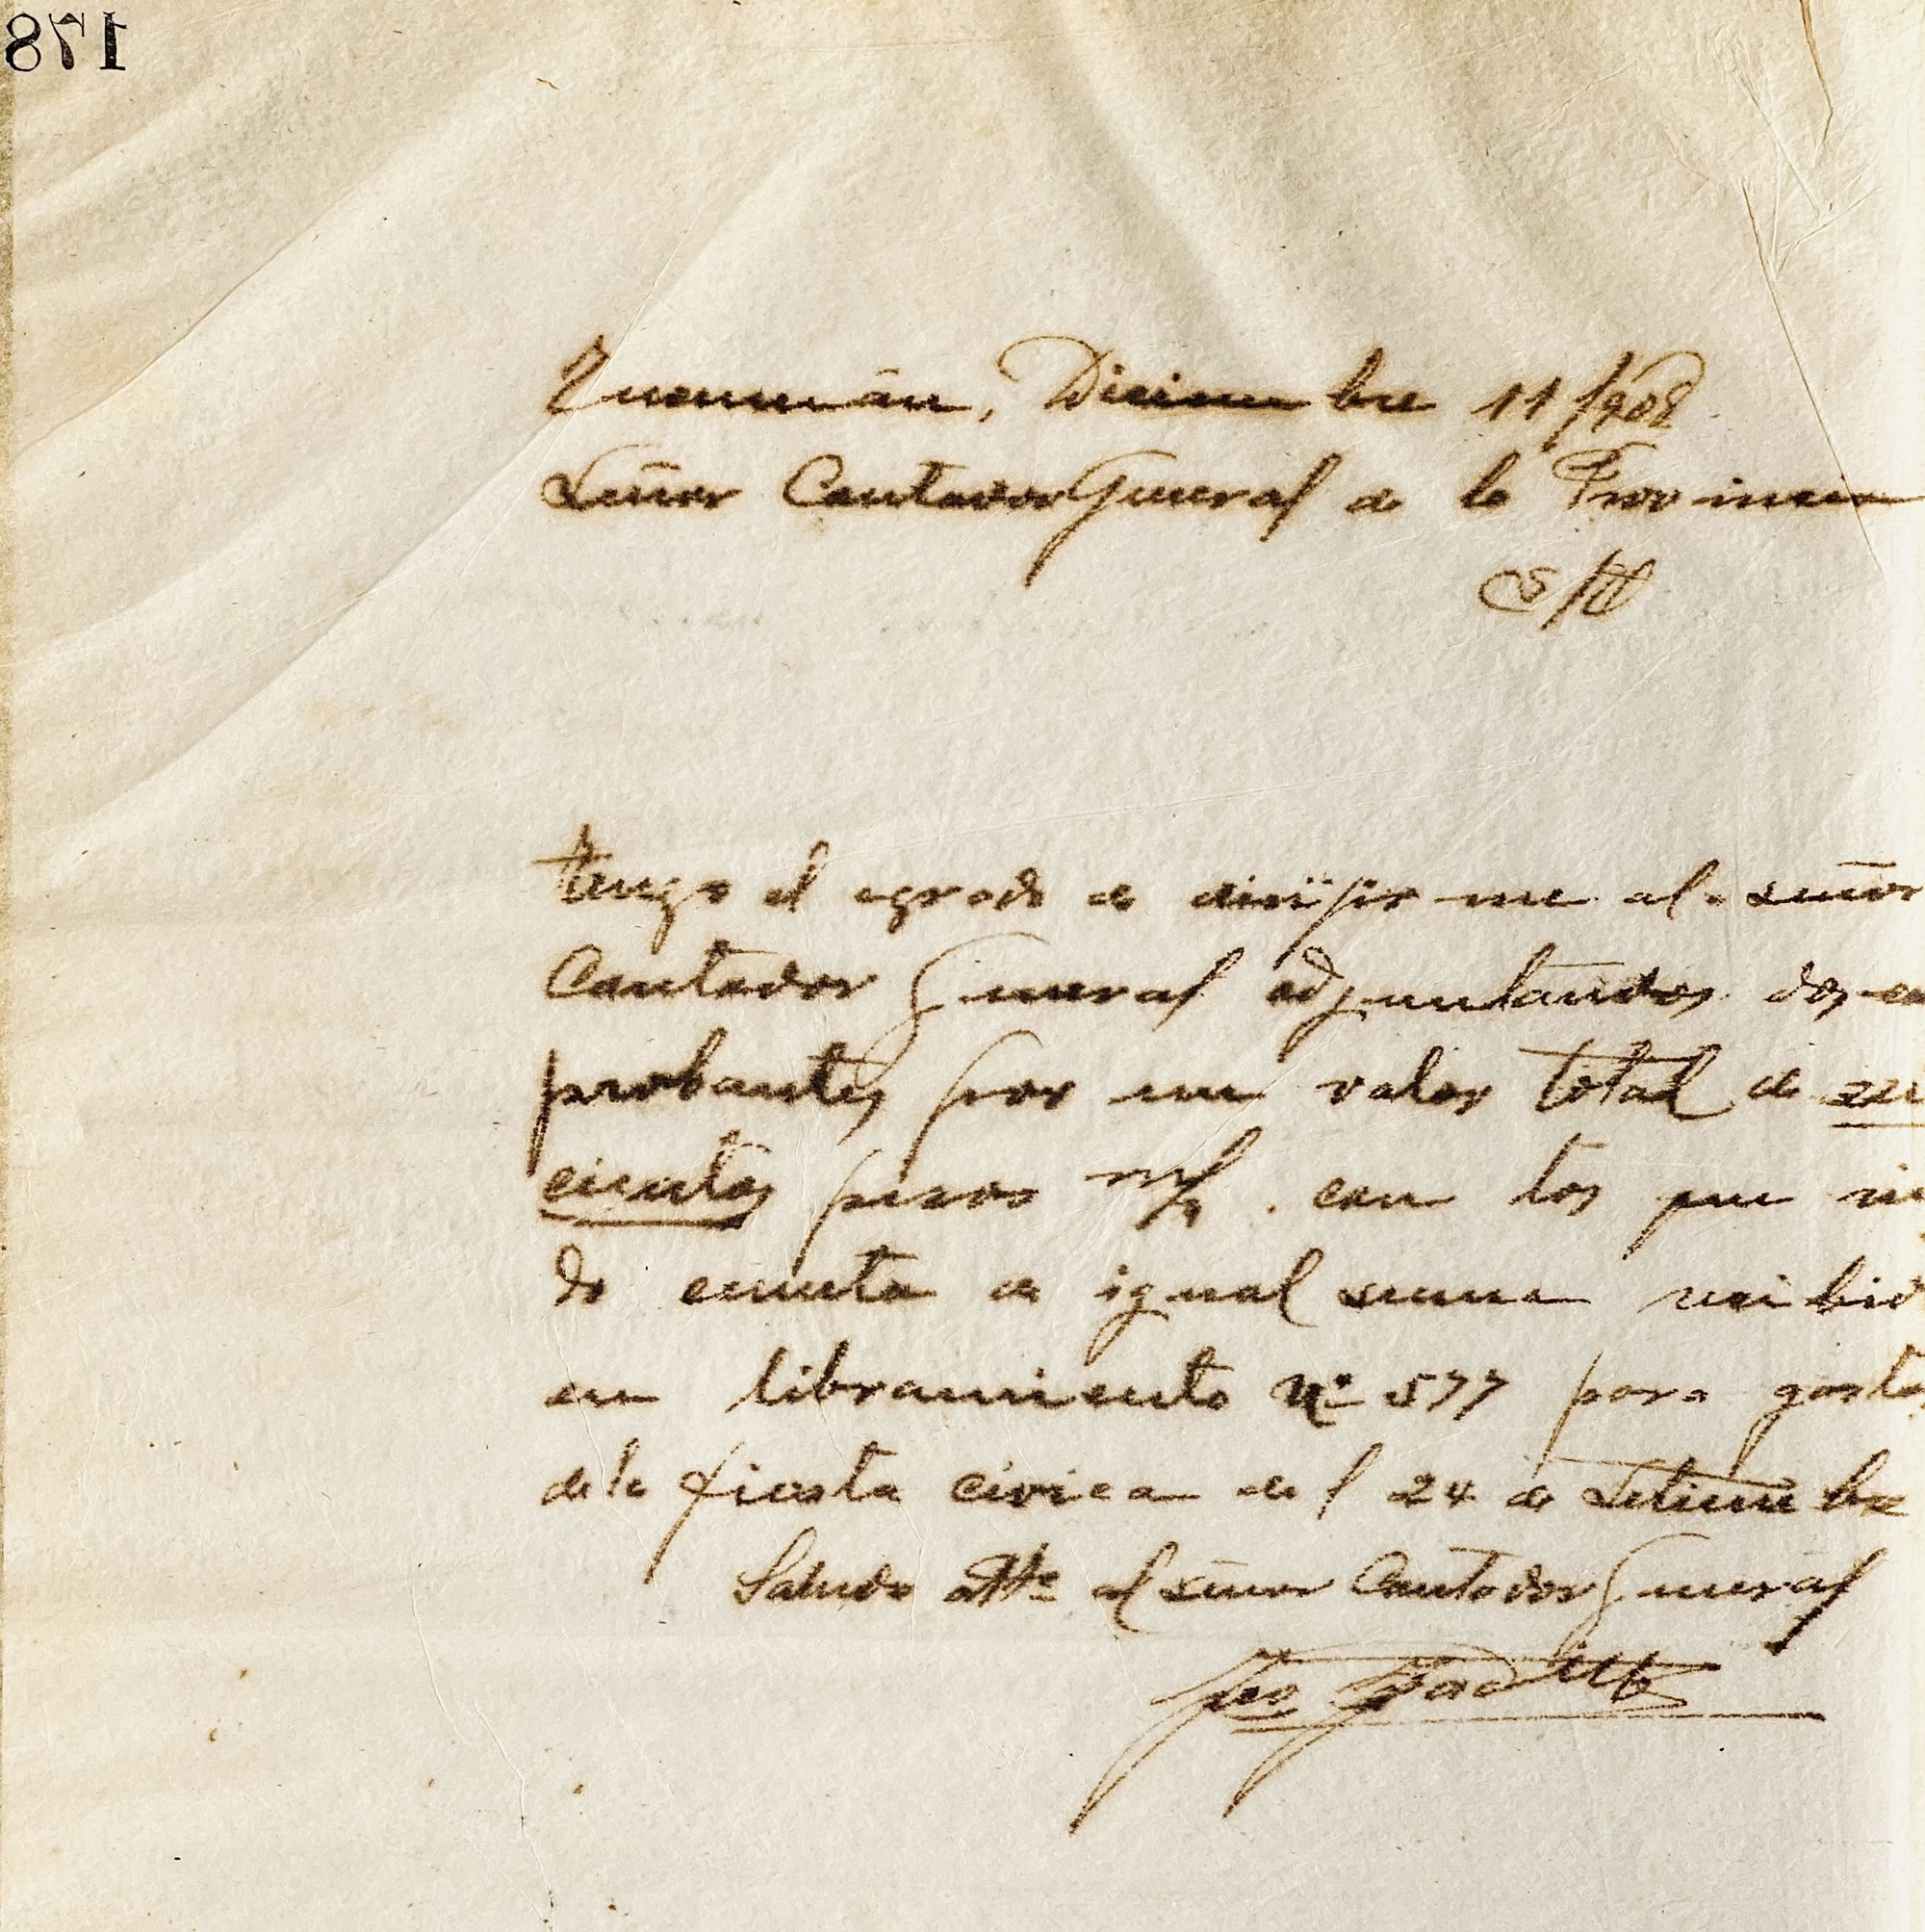 178
Tucumán, Diciembre 11/908
Señor Contador General de la Provincia
S/D
tengo el agrado de dirijirme al señor
Contador General adjuntando dos com
probantes por un valor total de
cientos pesos m/n. con los que rin
do cuenta de igual suma recibid
en libramiento Nº 577 para gastos
de la fiesta cívica del 24 de Setiembre
Saludo atte al señor Contador General